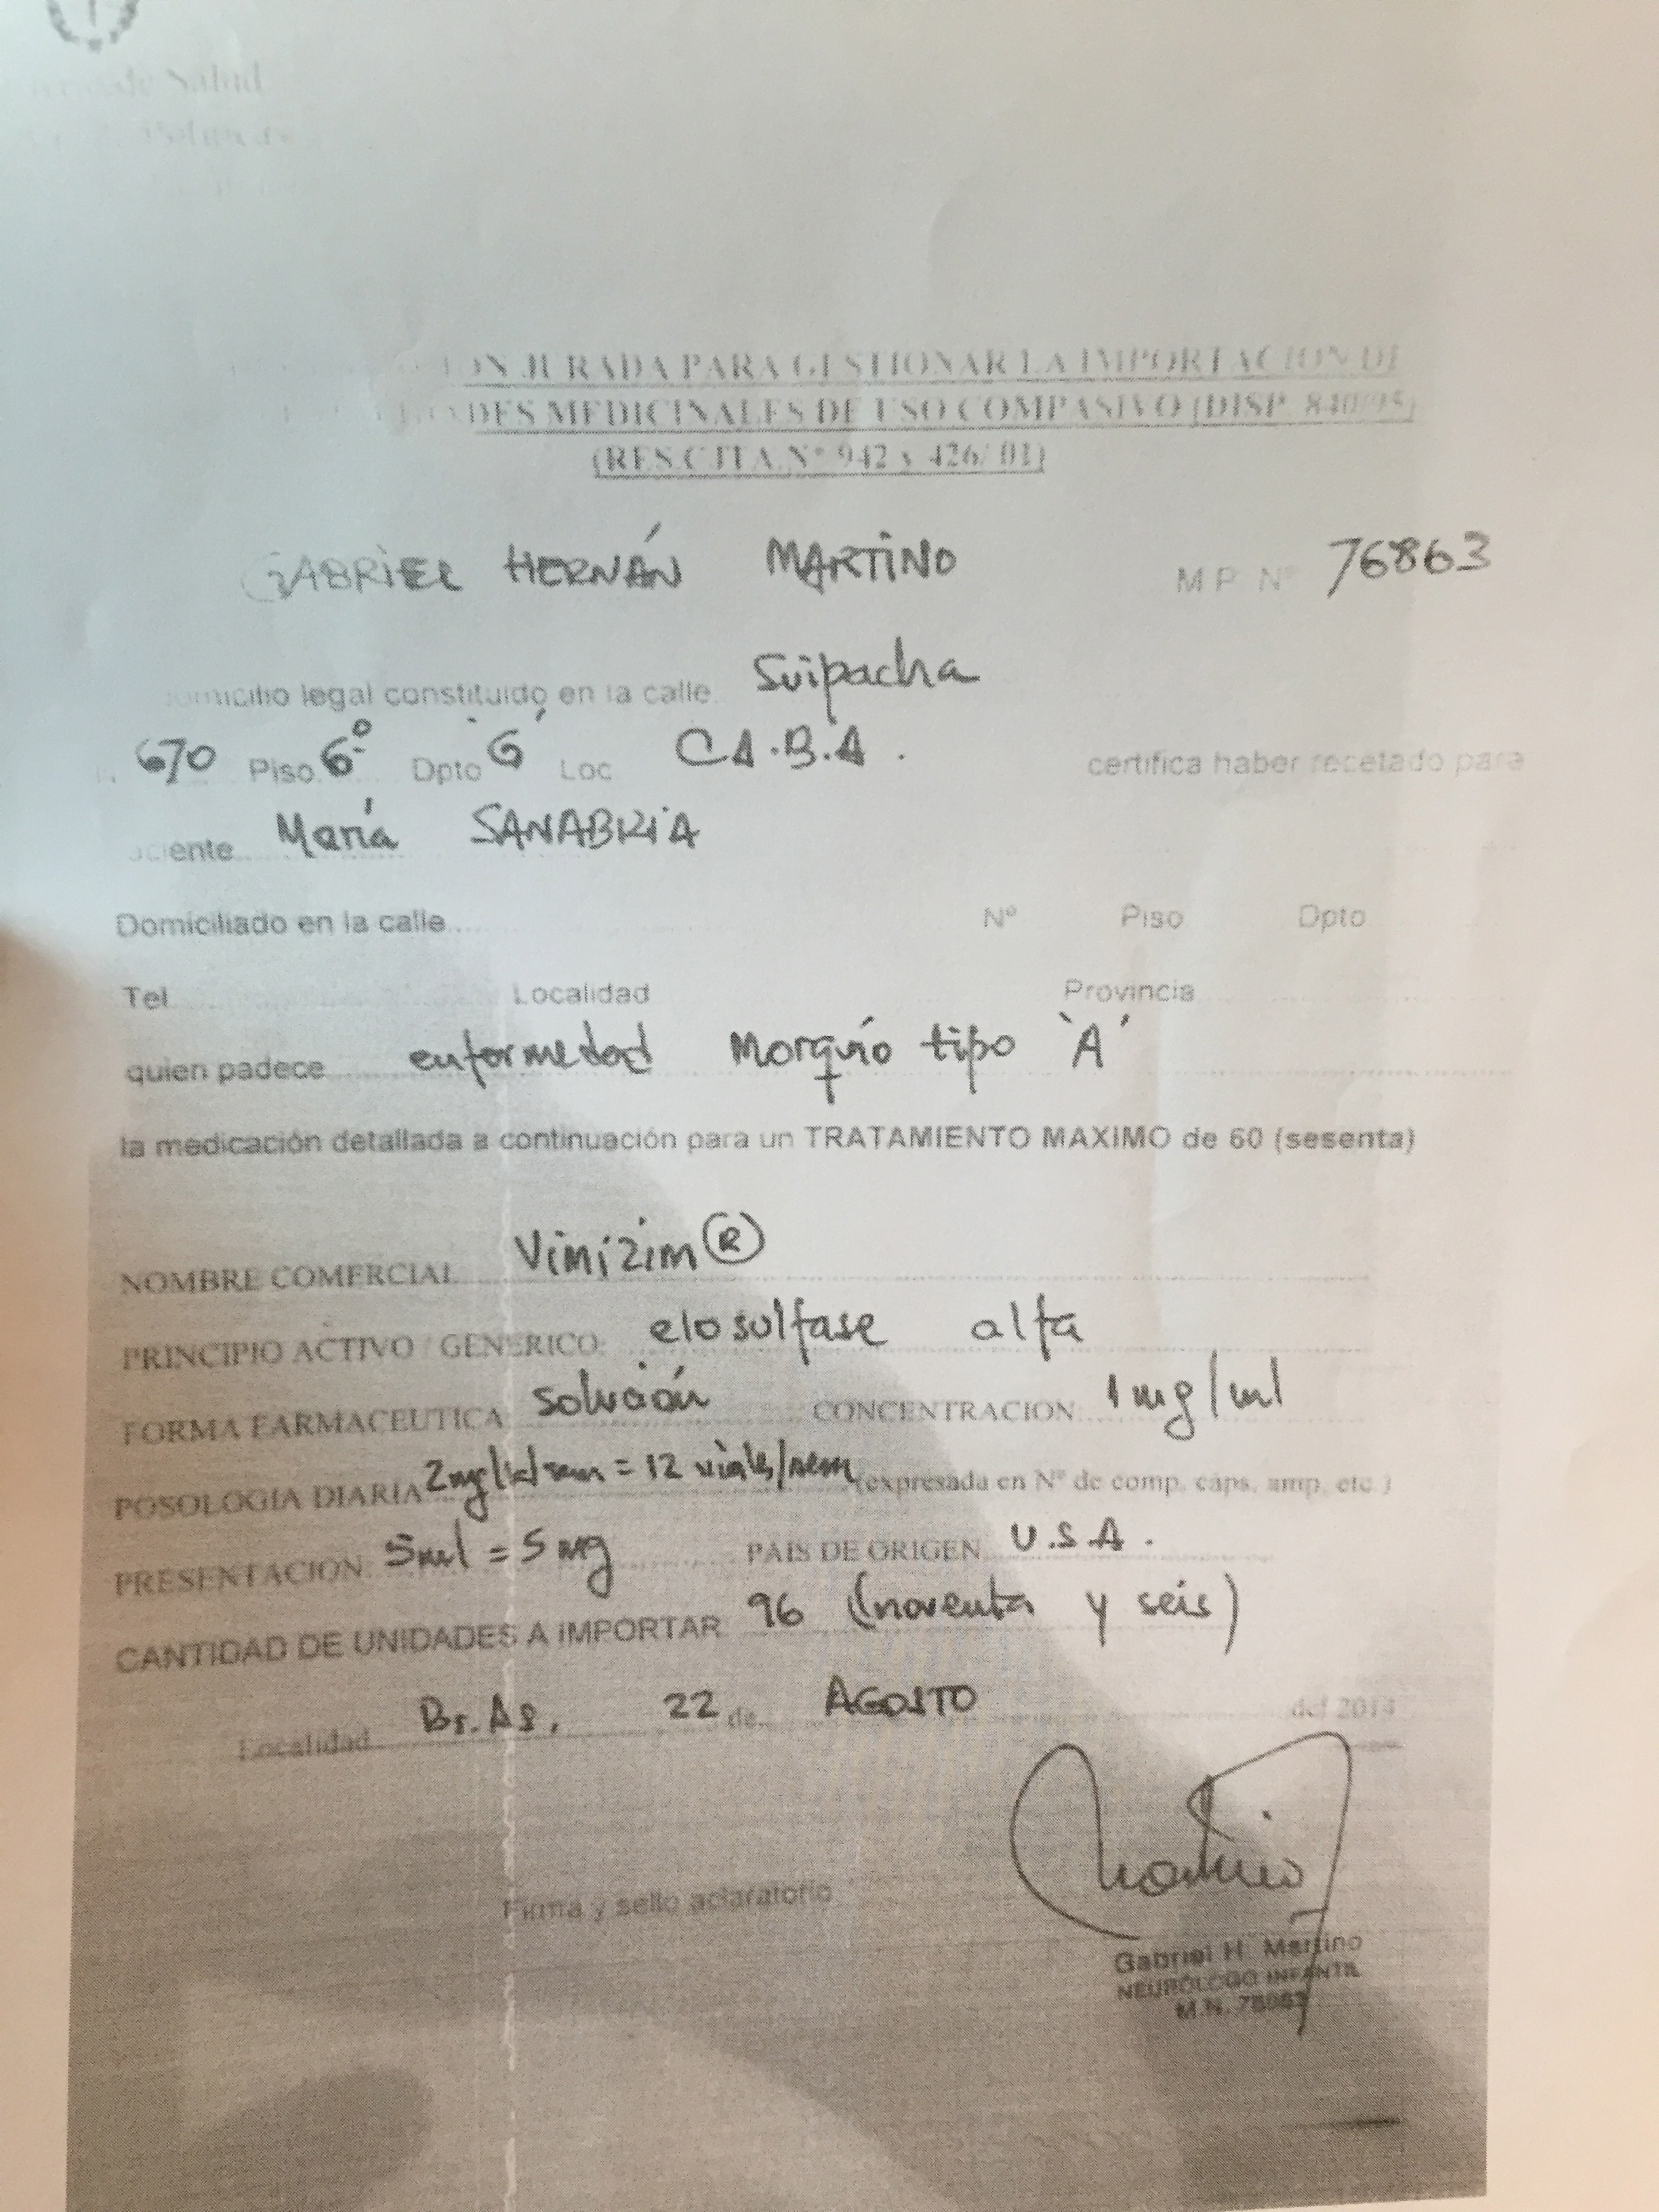 de Salud
JURADA PARA GESTIONAR LA IMPORTACION DE
MEDICINALES DE USO COMPASIVO (DISP. 840/95)
(RES.CJTA.Nº 942 y 426/ 01)
GABRIEL HERNÁN MARTINO M P Nº 76863
domicilio legal constituido en la calle. Suipacha
670 Piso. 6º Dpto 'G' Loc C.A.B.A. certifica haber recetado para
María SANABRIA
Domiciliado en la calle Nº Piso Dpto
Tel Localidad Provincia
quien padece enfermedad Morquio tipo 'A'
la medicación detallada a continuación para un TRATAMIENTO MAXIMO de 60 (sesenta)
NOMBRE COMERCIAL Vimizim ®
PRINCIPIO ACTIVO / GENERICO: elosulfase alfa
FORMA FARMACEUTICA: solución CONCENTRACION: 1 mg/ml
POSOLOGIA DIARIA 2mg/kg/sem = 12 viales/sem (expresada en Nº de comp, cáps, amp, etc.)
PRESENTACION: 5ml = 5 mg PAIS DE ORIGEN: U.S.A.
CANTIDAD DE UNIDADES A IMPORTAR 96 (noventa y seis)
Localidad Bs. As, 22 de AGOSTO del 2014
Firma y sello aclaratorio
Gabriel H. Martino
NEURÓLOGO INFANTIL
M.N. 76863